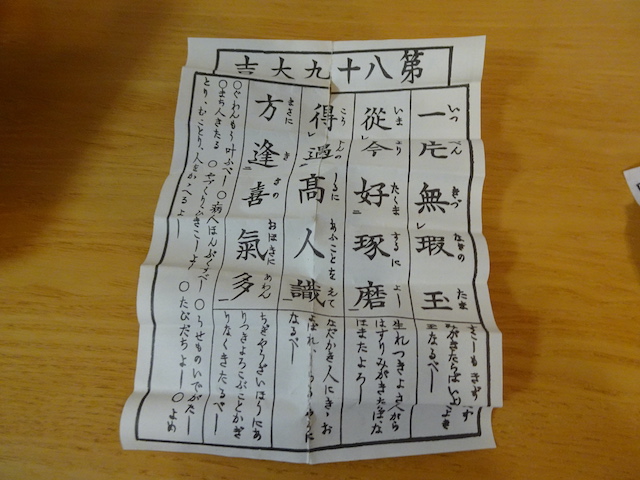 第八十九大吉
一片無瑕玉
いつ ぺん きづ なきの たま
從今好琢磨
いま より たくま するに よし
得遇高人識
こう じんの しるに あふことを えて
方逢喜氣多
まさに きの おほきに あわん
なるべし
生れつきよき人がら
はすりみがきたばな
ほまたよろし
なだかき人にき お
なるべし
りつきよろこぶことかぎ
りなくきたるべし
〇ぐわんもう叶ふべし 〇病人ほんぷくすべし 〇うせものいでがたし
〇まち人きたる 〇やづくりひきこしよし 〇たびだちよし 〇よめ
とり、むことり、人をかゝへるよし